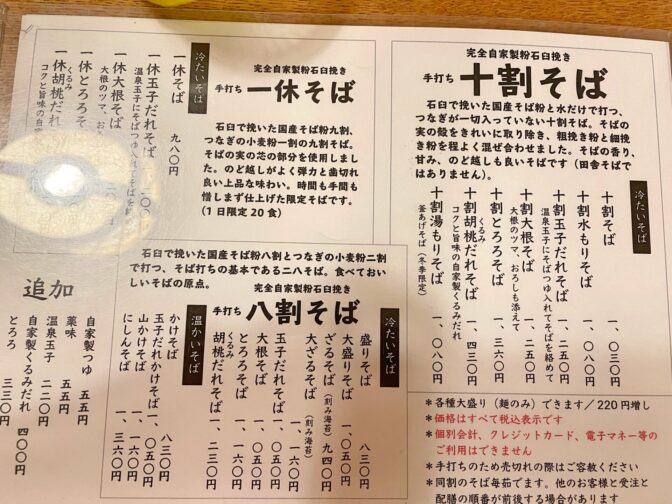 完全自家製粉石臼挽き
手打ち 十割そば
石臼で挽いた国産そば粉と水だけで打つ、
つなぎが一切入っていない十割そば。そばの
実の殻をきれいに取り除き、粗挽き粉と細挽
き粉を程よく混ぜ合わせました。そばの香り、
甘み、のど越しも良いそばです（田舎そばで
はありません）。
冷たいそば
十割そば 一、〇三〇円
十割水もりそば 一、〇八〇円
十割玉子だれそば 一、二五〇円
温泉玉子にそばつゆ入れてそばを絡めて
十割大根そば 一、二五〇円
大根のツマ、おろしも添えて
十割とろろそば 一、三六〇円
十割胡桃だれそば 一、四三〇円
くるみ
コクと旨味の自家製くるみだれ
十割湯もりそば 一、〇八〇円
釜あげそば（冬季限定）
＊各種大盛り（麺のみ）できます／220円増し
＊価格はすべて税込表示です
＊個別会計、クレジットカード、電子マネー等の
ご利用はできません
＊手打ちのため売切れの際はご容赦ください
＊同割のそば毎茹でます。他のお客様と受注と
配膳の順番が前後する場合があります
完全自家製粉石臼挽き
手打ち 一休そば
石臼で挽いた国産そば粉九割、
つなぎの小麦粉一割の九割そば。
そばの実の芯の部分を使用しまし
た。のど越しがよく弾力と歯切れ
良い上品な味わい。時間も手間も
惜しまず仕上げた限定そばです。
（1日限定20食）
冷たいそば
一休そば 九八〇円
一休玉子だれそば
温泉玉子にそばつゆ入れてそばを
一休大根そば
大根のツマ、お
一休とろろそ
一休胡桃だれ
くるみ
コクと旨味の自家
石臼で挽いた国産そば粉八割とつなぎの小麦粉二割
で打つ、そば打ちの基本である二八そば。食べておい
しいそばの原点。
完全自家製粉石臼挽き
手打ち 八割そば
冷たいそば
盛りそば 八三〇円
大盛りそば 一、〇五〇円
ざるそば（刻み海苔） 九四〇円
大ざるそば（刻み海苔） 一、一六〇円
玉子だれそば 一、〇五〇円
大根そば 一、〇五〇円
とろろそば 一、一六〇円
胡桃だれそば 一、二三〇円
くるみ
温かいそば
かけそば 八三〇円
玉子だれかけそば 一、〇五〇円
山かけそば 一、一六〇円
にしんそば 一、三六〇円
追加
自家製つゆ 五五円
薬味 五五円
温泉玉子 二二〇円
自家製くるみだれ 四〇〇円
とろろ 三三〇円